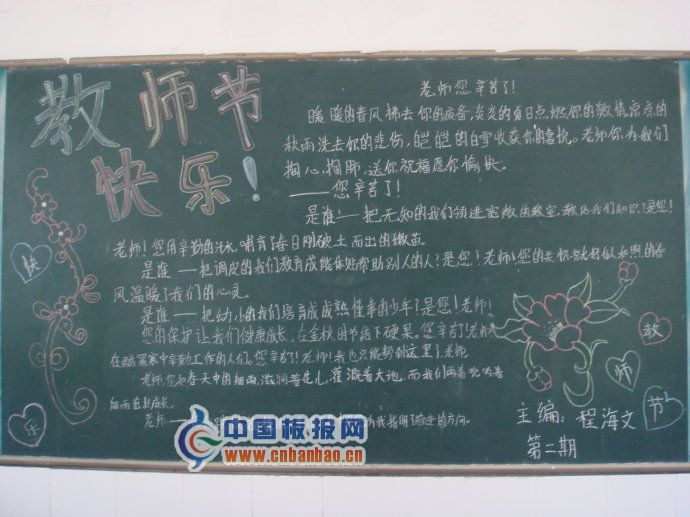 教师节
快乐!
老师您辛苦了!
暖暖的春风拂去你的疲备,炎炎的夏日点燃你的激情,凉凉的
秋雨洗去你的悲伤,皑皑的白雪收获你的喜悦。老师你为我们
掏心,掏肺,送你祝福愿你愉快。
——您辛苦了!
是谁——把无知的我们领进宽敞的教室,教给我们知识?是您!
老师!您用辛勤的汗水,哺育了春日刚破土而出的嫩苗。
是谁——把调皮的我们教育成能体贴帮助别人的人?是您!老师!您的关怀就好似和煦的春
风温暖了我们的心灵。
是谁——把幼小的我们培育成成熟懂事的少年?是您!老师!
您的保护让我们健康成长。在金秋时节结下硕果。您辛苦了!老师
在酷暑寒中辛勤工作的人们。您辛苦了!老师!我也只能帮到这里了,老师。
老师,您如春天中的细雨,滋润着花儿,灌溉着大地,而我们
细雨茁壮成长。
老师——
为我指明了前进的方向。
快
乐
教
师
节
主编:程海文
第二期
中国板报网
www.cnbanbao.cn